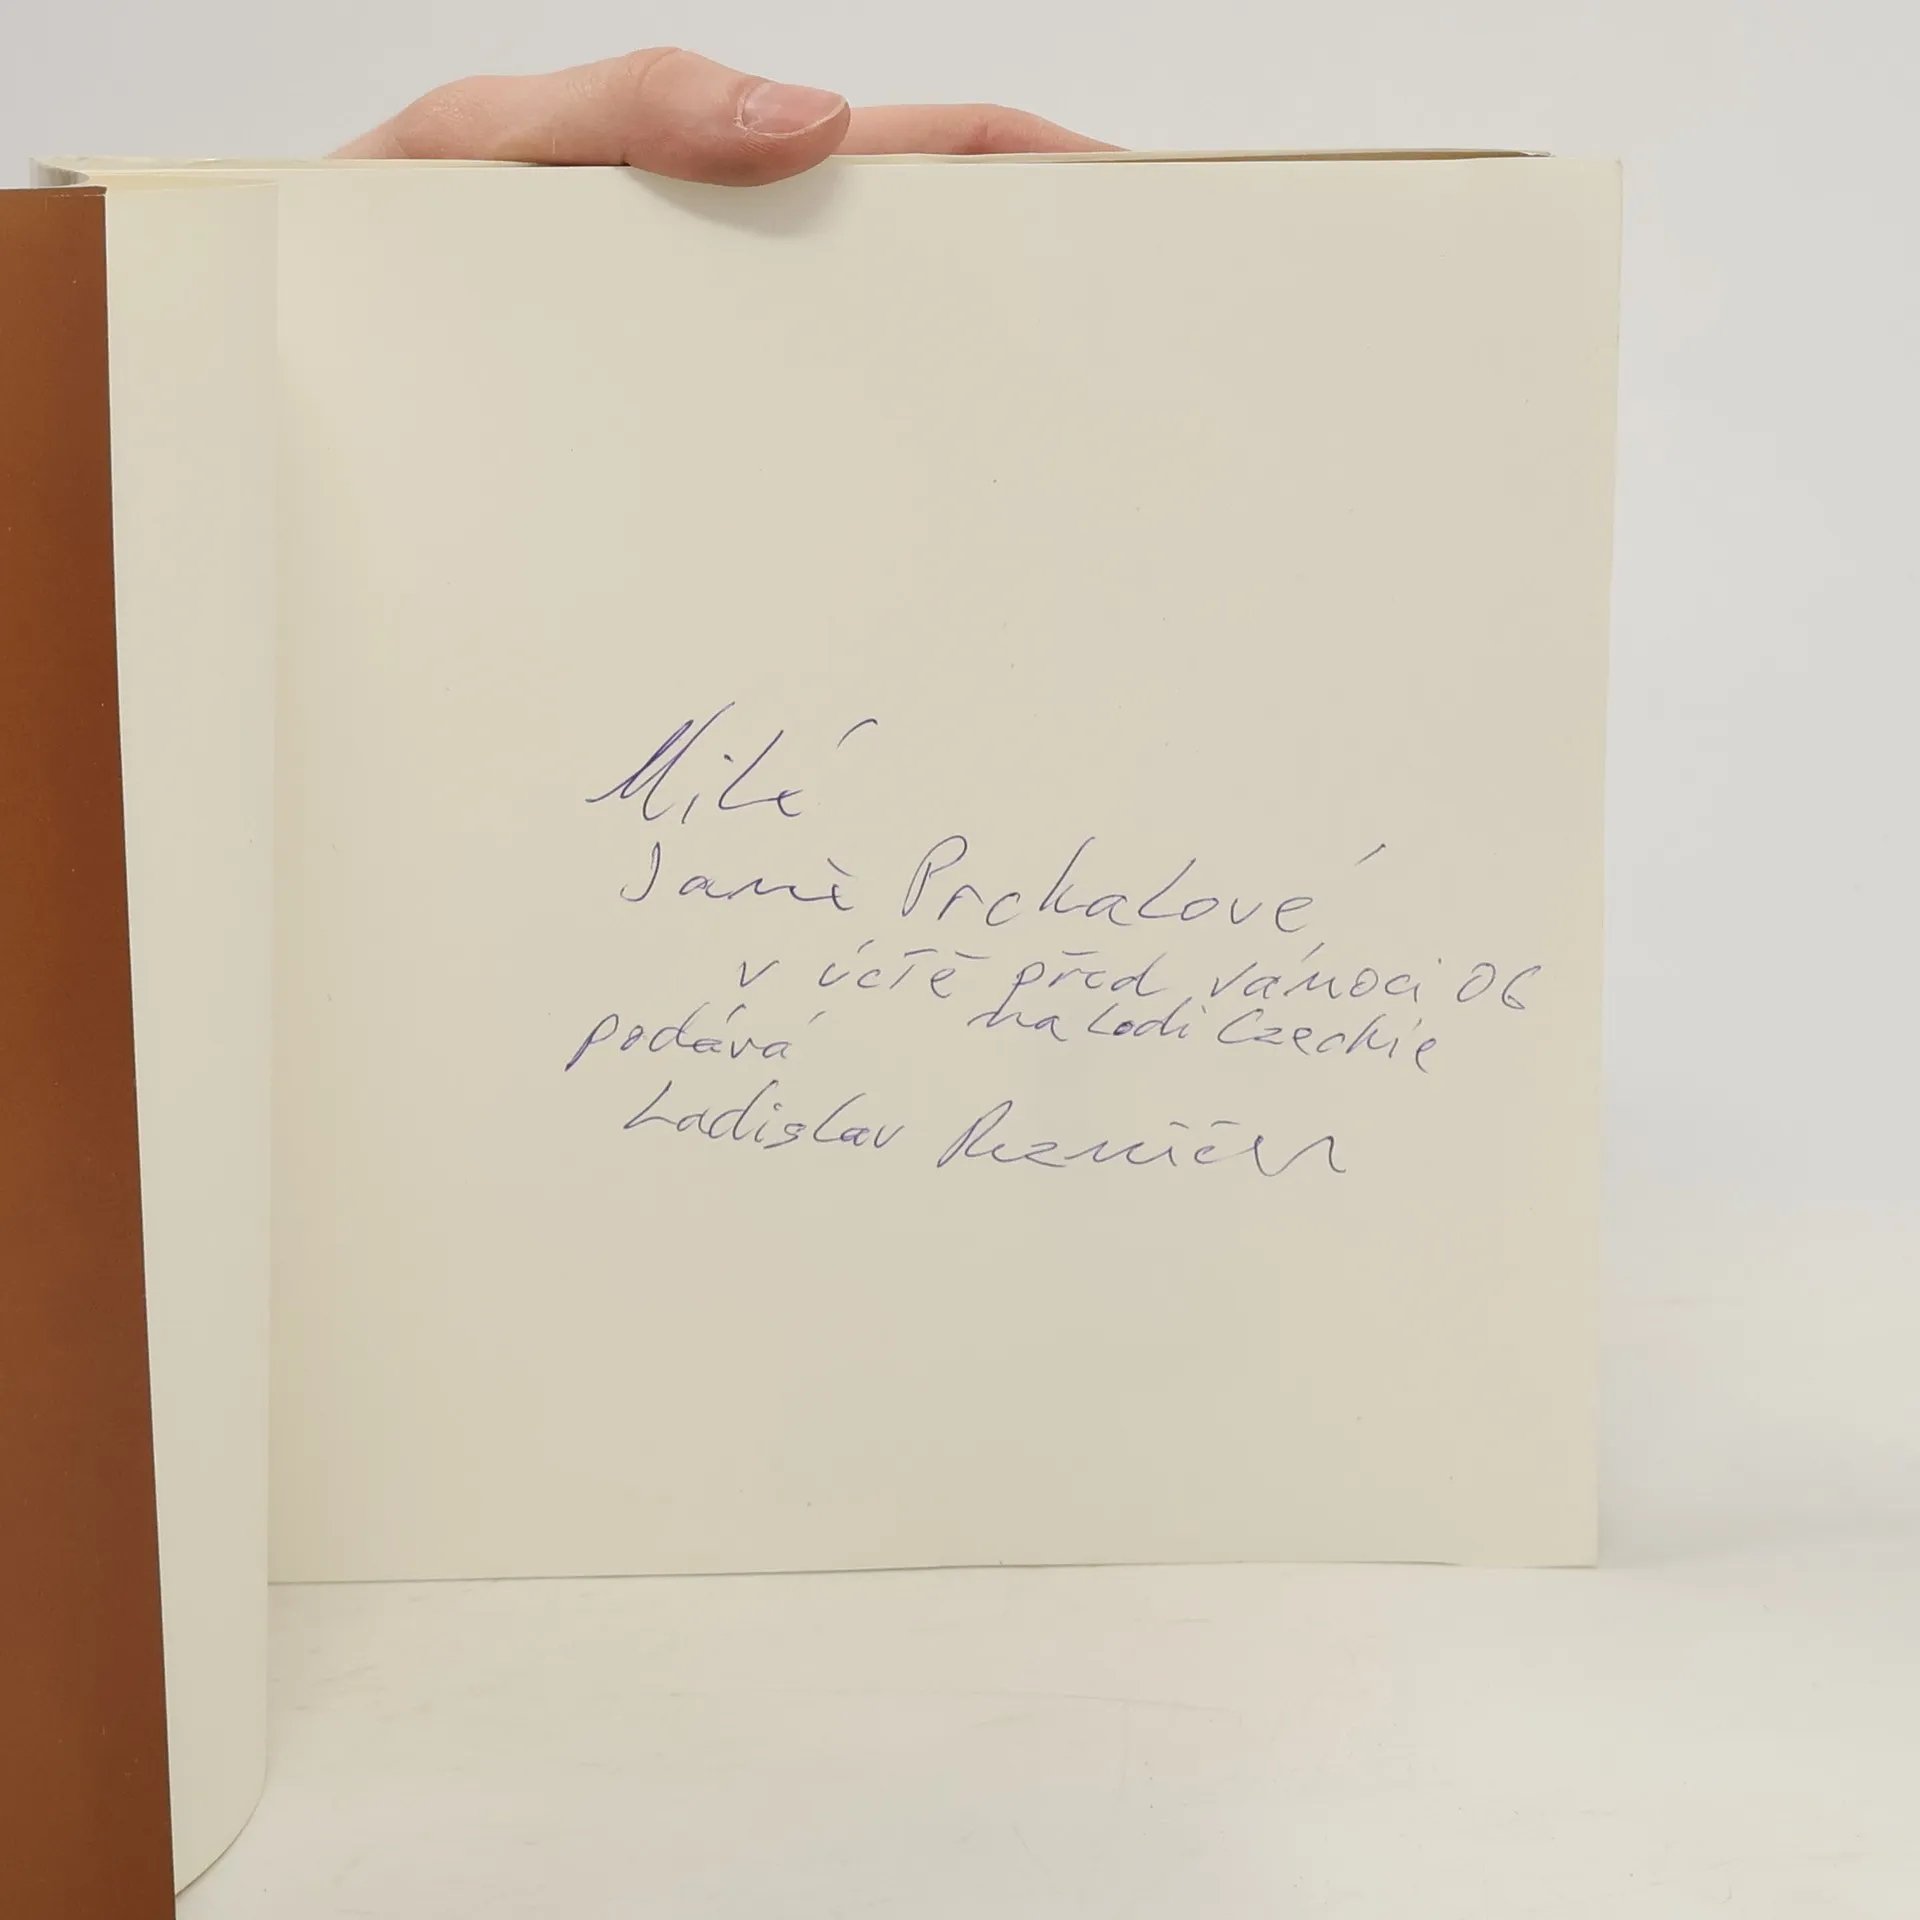 Milé
Janě Prckalové
v úctě před vánoci 06
na lodi Czechie
podává
Ladislav Řezníček